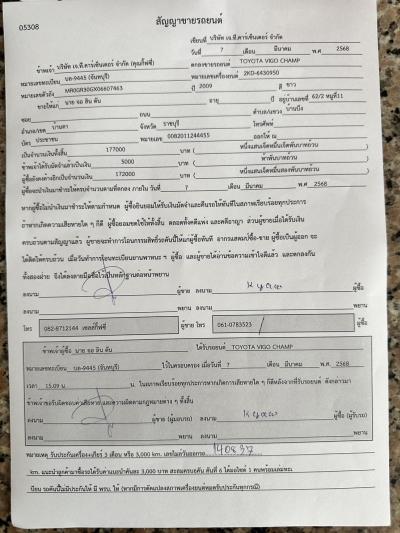 05308
สัญญาขายรถยนต์
เขียนที่ บริษัท เจ.ที.คาร์เซ็นเตอร์ จำกัด
วันที่ 7 เดือน มีนาคม พ.ศ 2568
ข้าพเจ้า บริษัท เจ.ที.คาร์เซ็นเตอร์ จำกัด (คุณกี้ฟซี่) ตกลงขายรถยนต์ TOYOTA VIGO CHAMP
หมายเลขทะเบียน บล-9445 (จันทบุรี) หมายเลขเครื่องยนต์ 2KD-6430950
หมายเลขตัวถัง MR0GR30GX06607463 ปี 2009 สี ขาว
ขายให้แก่ นาย จอ อิน ดัน อายุ ปี อยู่บ้านเลขที่ 62/2 หมู่ที่11
ซอย ถนน ตำบล/แขวง บ้านบึง
อำเภอ/เขต บ้านคา จังหวัด ราชบุรี โทรศัพท์
บัตร ประชาชน หมายเลข 0082011244455 ออกให้ ณ
เป็นจำนวนเงินทั้งสิ้น 177000 บาท ( หนึ่งแสนเจ็ดหมื่นเจ็ดพันบาทถ้วน )
ข้าพเจ้าได้รับมัดจำแล้วเป็นเงิน 5000 บาท ( ห้าพันบาทถ้วน )
ผู้ซื้อยังคงค้างอีกเป็นจำนวนเงิน 172000 บาท ( หนึ่งแสนเจ็ดหมื่นสองพันบาทถ้วน )
ผู้ซื้อจะนำเงินมาชำระให้ครบจำนวนตามที่ตกลง ภายใน วันที่ 7 เดือน มีนาคม พ.ศ 2568
หากผู้ซื้อไม่นำเงินมาชำระให้ตามกำหนด ผู้ซื้อยินยอมให้ริบเงินมัดจำและคืนรถให้ทันทีในสภาพเรียบร้อยทุกประการ
ถ้าหากเกิดความเสียหายใด ๆ ก็ดี ผู้ซื้อยอมชดใช้ให้ทั้งสิ้น ตลอดทั้งคดีแพ่ง และคดีอาญา ส่วนผู้ขายเมื่อได้รับเงิน
ครบถ้วนตามสัญญาแล้ว ผู้ขายจะทำการโอนกรรมสิทธิ์รถคันนี้ให้ผู้ซื้อทันที อากรแสตมป์ซื้อ-ขาย ผู้ซื้อเป็นผู้ออก จะ
ทั้งสองฝ่าย จึงได้ลงลายมือชื่อไว้เป็นหลักฐานต่อหน้าพยาน
ลงนาม ผู้ขาย ลงนาม Kyaw ผู้ซื้อ
ลงนาม พยาน ลงนาม พยาน
โทร 082-8712144 เซลล์กี้ฟซี่ ผู้ขาย โทร 061-0783523 ผู้ซื้อ
ข้าพเจ้าผู้ซื้อ นาย จอ อิน ดัน ได้รับรถยนต์ TOYOTA VIGO CHAMP
หมายเลขทะเบียน บล-9445 (จันทบุรี) ไว้ในครอบครอง เมื่อวันที่ 7 เดือน มีนาคม พ.ศ 2568
เวลา 15.09 น. น. ในสภาพเรียบร้อยทุกประการหากเกิดการเสียหายใด ๆ ก็ดีหลังจากที่รับรถยนต์ ดังกล่าวมา
ข้าพเจ้าขอรับผิดชอบความเสียหาย และความผิดตามกฎหมายต่าง ๆ ทั้งสิ้น
ลงนาม ผู้ขาย (ผู้มอบรถ) ลงนาม Kyaw ผู้ซื้อ (ผู้รับรถ)
ลงนาม พยาน ลงนาม พยาน
หมายเหตุ รับประกันเครื่อง+เกียร์ 3 เดือน หรือ 3,000 km. เลขไมล์วันออกรถ 140837
km. แนะนำลูกค้ามาซื้อรถได้รับค่าแนะนำคันละ 3,000 บาท สะสมครบคัน คันที่ 6 ได้มอไซค์ 1 คันพร้อมเล่มทะ
เบียน รถคันนี้ไม่มีประกันให้ มี พรบ. ให้ (หากมีการดัดแปลงสภาพเครื่องยนต์หมดรับประกันทุกกรณี)